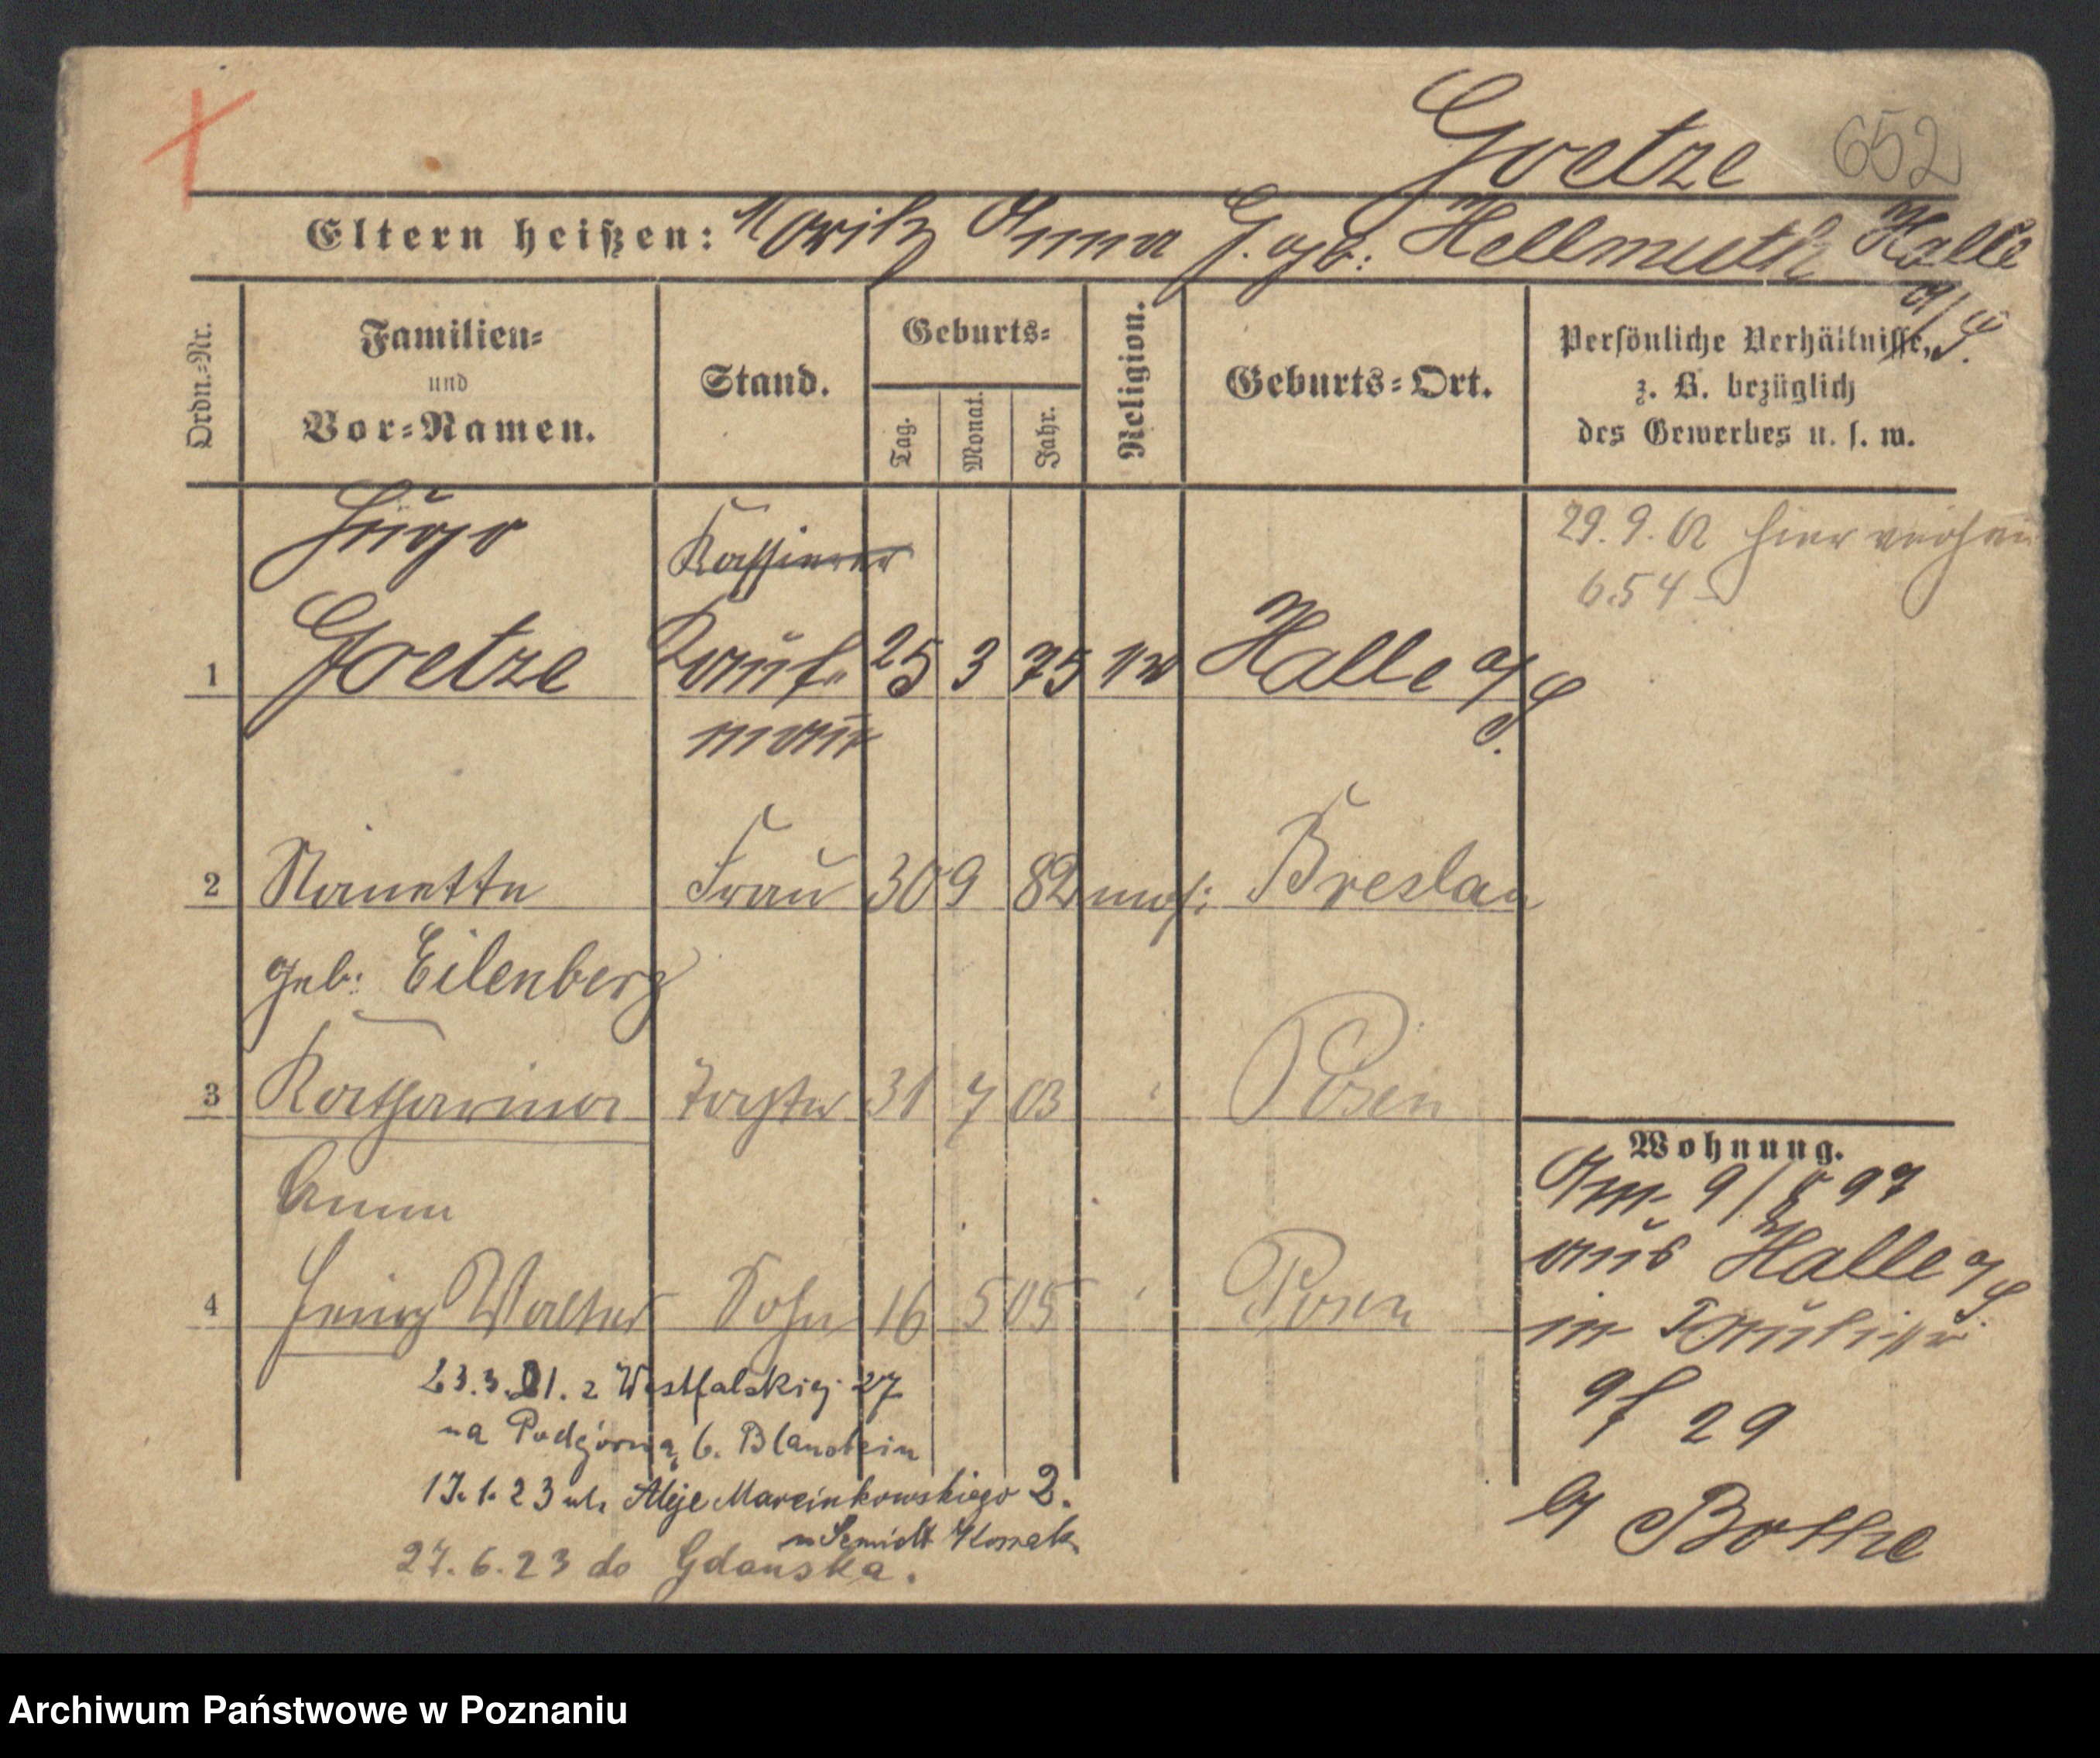 Goetze 652
Eltern heißen: Moritz Anna G. geb: Hellmuth Halle
a/S.
Ordn.-Nr.
Familien-
und
Vor-Namen.
Stand.
Geburts-
Tag.
Monat.
Jahr.
Religion.
Geburts-Ort.
Persönliche Verhältnisse,
z. B. bezüglich
des Gewerbes u. s. w.
Hugo
Kassierer
29.9.02 hier
654
1 Goetze Kauf- 25 3 75 Halle a/S.
mann
2 Nanette Frau 30 9 82 mos: Breslau
geb: Eilenberg
3 Katharina Tochter 31 7 03 Posen
Anna
4 Heinz Walter Sohn 16 5 05 Posen
Wohnung.
9/8 97
aus Halle a/S.
in
29
b/ Bothe
23.3.21. z Westfalskiej 27
na Podgórną 6. Blanstein
17.1.23 ul. Aleje Marcinkowskiego 2.
27.6.23 do Gdańska.
Archiwum Państwowe w Poznaniu